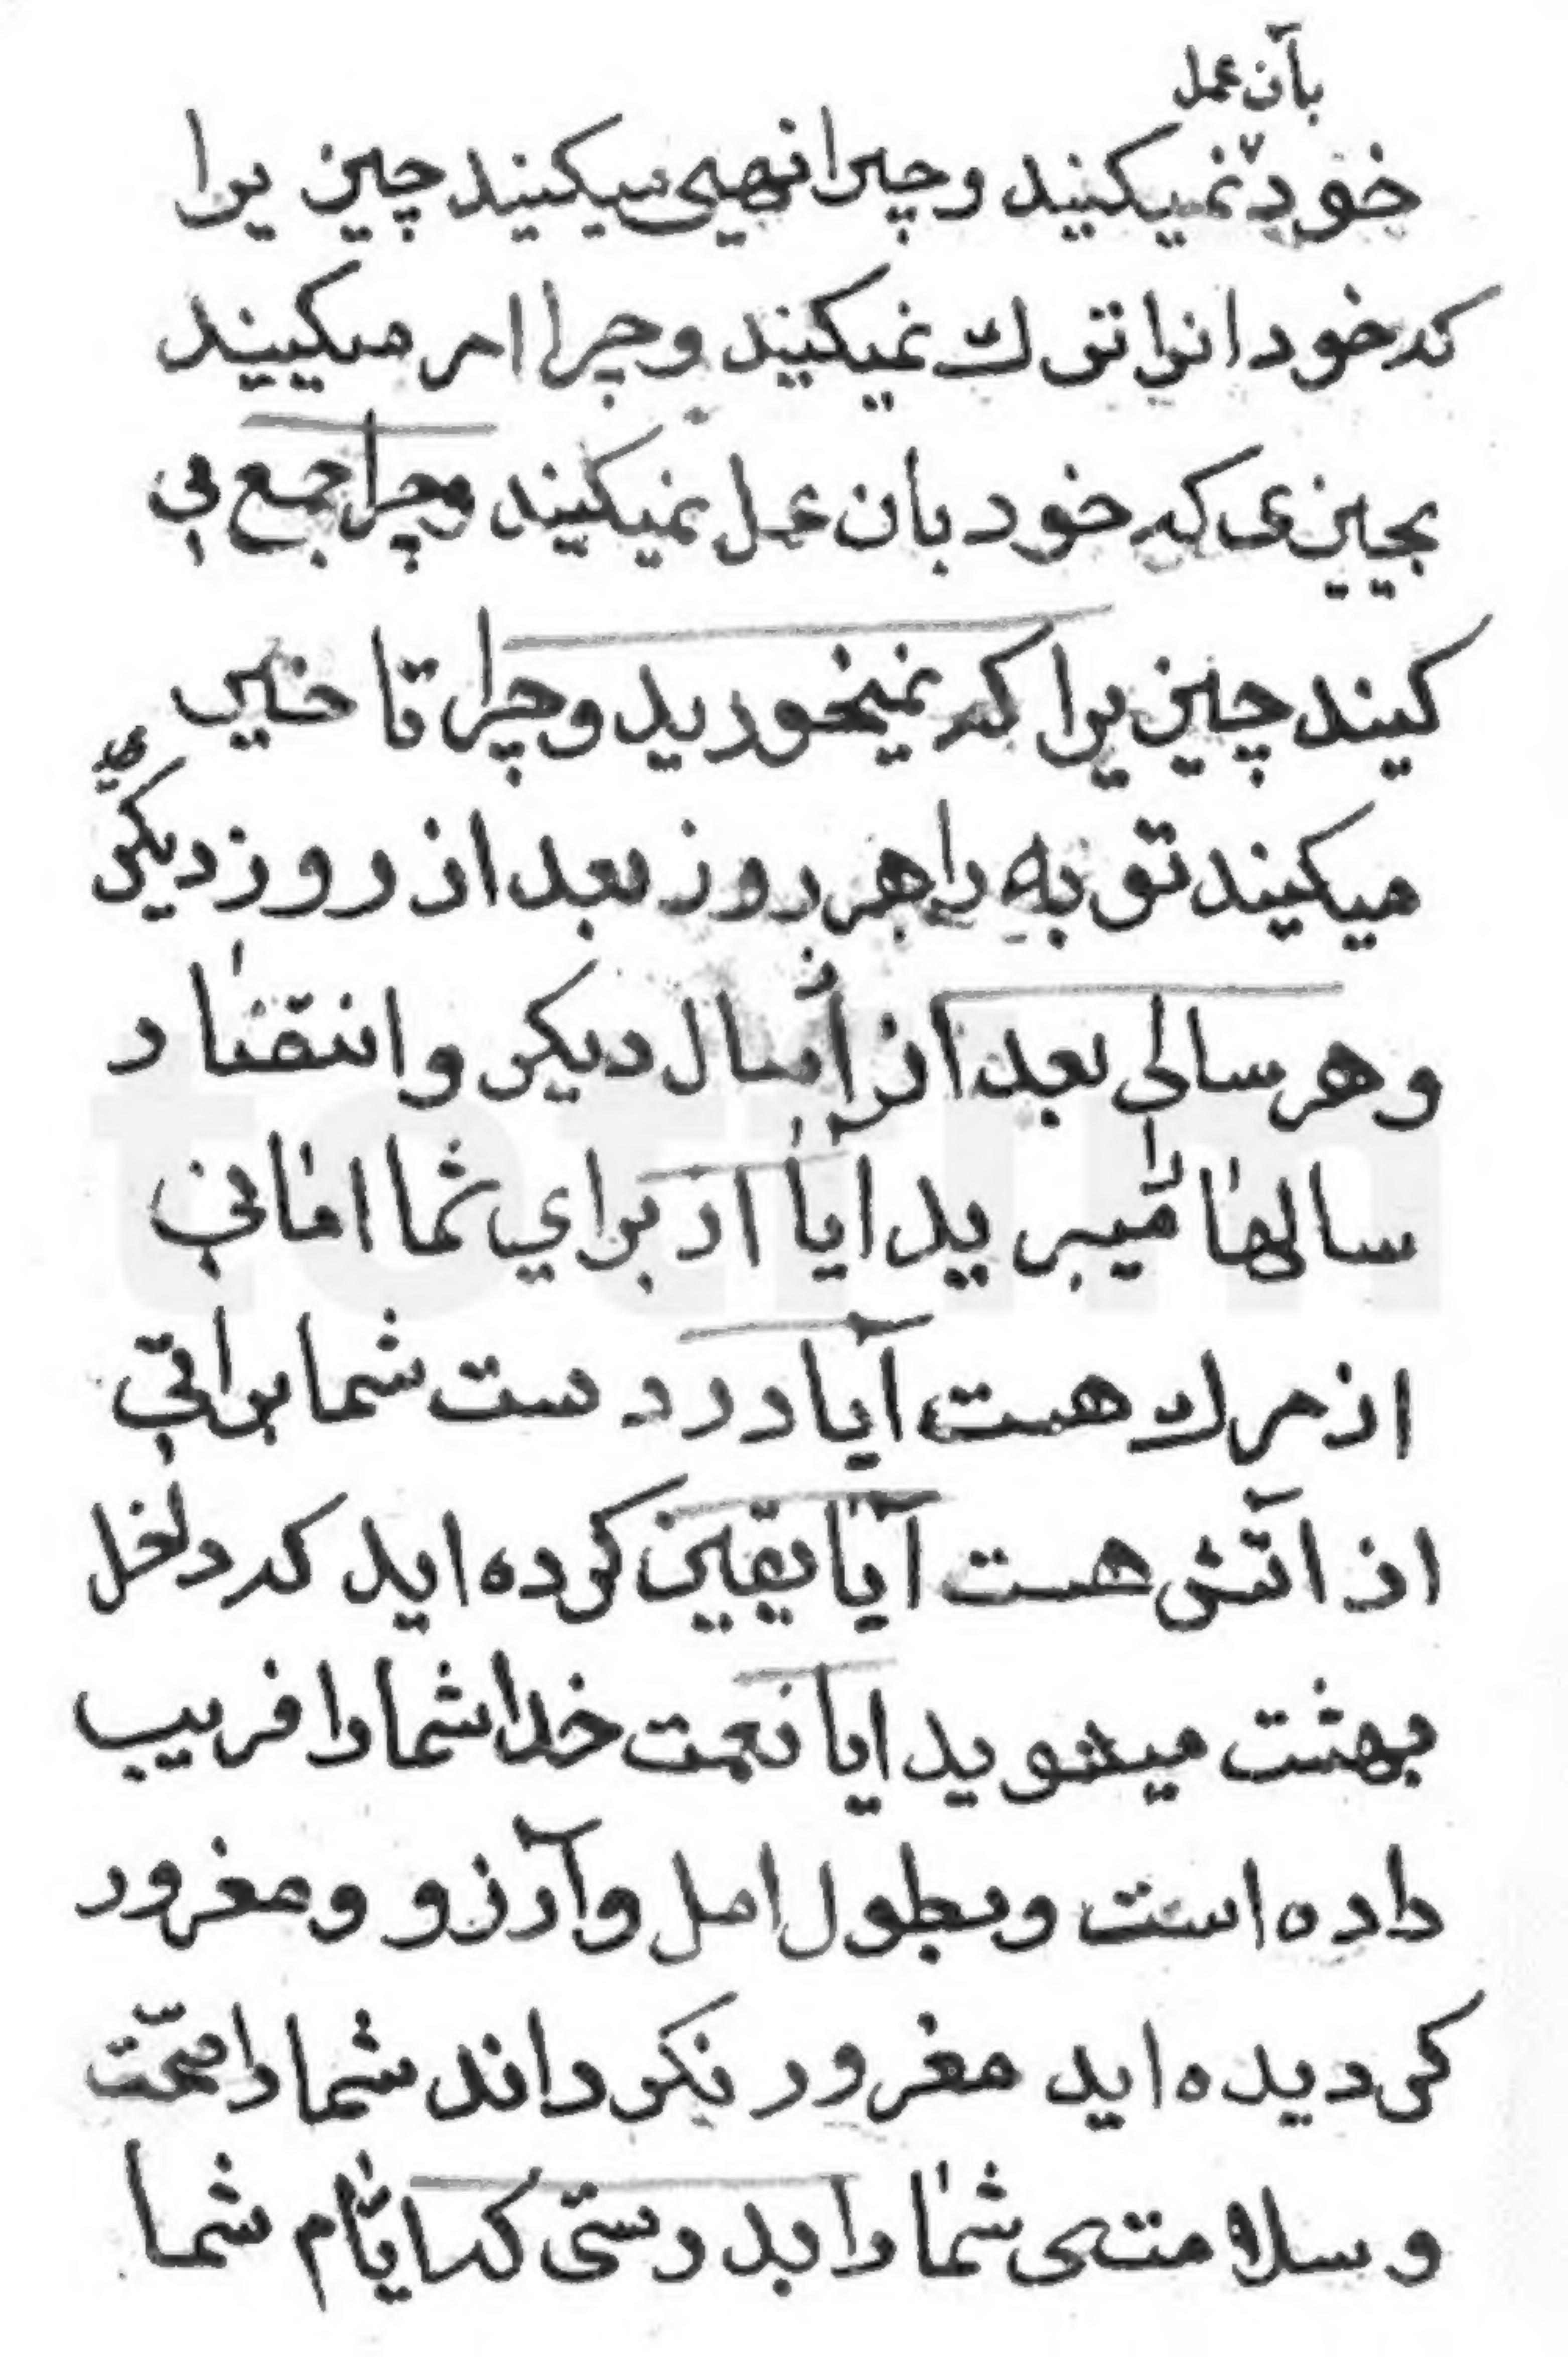 بآن عمل
خود نمیکنید و چرا نهی میکنید چیزیرا
که خود انرا ترك نمیکنید و چرا امر میکنید
بچیزی که خود بان عمل نمیکنید و چرا جمع می
کنید چیزیرا که نمیخورید و چرا تاخیر
میکنید توبه را هر روز بعد از روز دیکر
و هر سالی بعد از سال دیکر و انتقاد
سالها را میبرید ایا از برای شما امانی
از مرك هست آیا در دست شما براتی
از آتش هست آیا یقین کرده اید که داخل
بهشت میشوید ایا نعمت خدا شما را فریب
داده است و بطول امل و آرزو و مغرور
کردیده اید مغرور نکرداند شما را صحّت
و سلامتی شما را بدرستی که ایّام شما